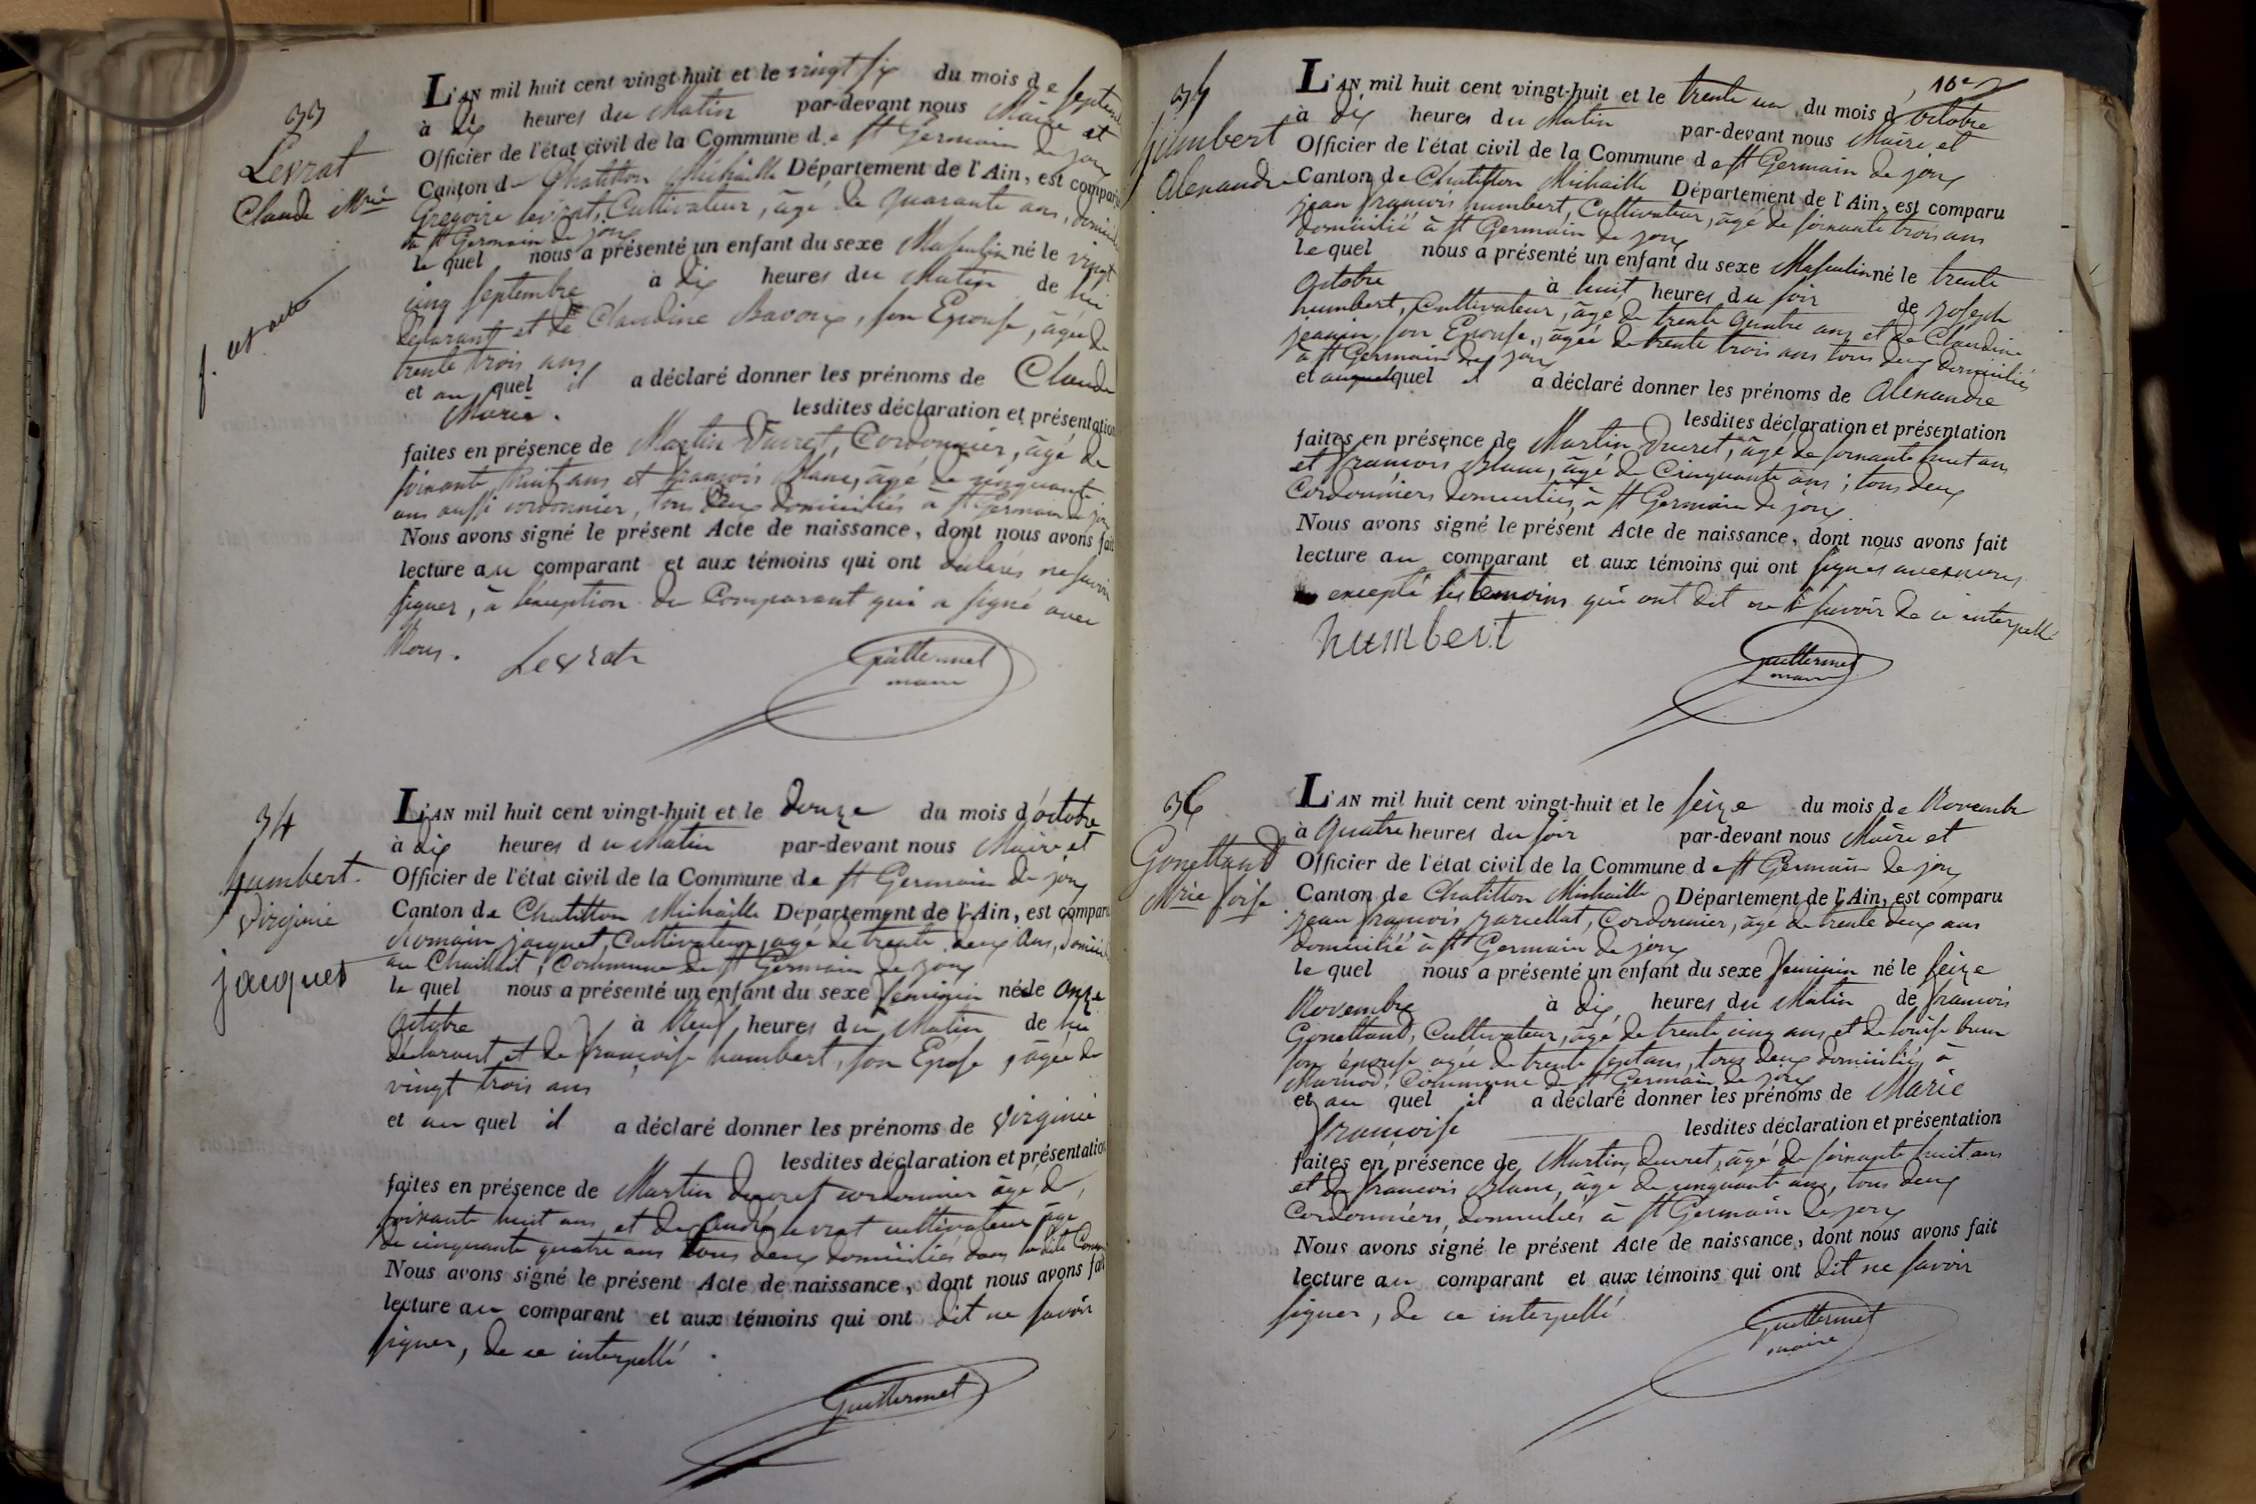 33
Levrat
Claude Mrie
L'AN mil huit cent vingt-huit et le vingt six du mois de septem
à dix heures du Matin par-devant nous Maire et
Officier de l'état civil de la Commune de St Germain de joux
Canton de Chatillon Michaille Département de l'Ain, est comparu
Gregoire levrat, Cultivateur, âgé de quarante ans, domicilié
à St Germain de joux
le quel nous a présenté un enfant du sexe Masculin né le vingt
cinq septembre à dix heures du Matin de lui
déclarant et de Claudine Bavoux, son Epouse, âgée de
trente trois ans
et au quel il a déclaré donner les prénoms de Claude
Marie. lesdites déclaration et présentation
faites en présence de Martin Ducret, Cordonnier, âgé de
soixante huit ans et françois Blanc, âgé de cinquante
ans aussi cordonnier, tous deux domiciliés à St Germain de joux
Nous avons signé le présent Acte de naissance, dont nous avons fait
lecture au comparant et aux témoins qui ont déclarés ne savoir
signer, à l'exception du Comparant qui a signé avec
Nous.
Levrat Guillermet
maire
34
humbert
Virginie
jacquet
L'AN mil huit cent vingt-huit et le douze du mois d'octobre
à dix heures du Matin par-devant nous Maire et
Officier de l'état civil de la Commune de St Germain de joux
Canton de Chatillon Michaille Département de l'Ain, est comparu
Romain jacquet, Cultivateur, agé de trente deux ans, domicilié
au Commune de St Germain de joux
le quel nous a présenté un enfant du sexe feminin né le onze
Octobre à Neuf heures du Matin de lui
déclarant et de françoise humbert, son Epose, âgée de
vingt trois ans
et au quel il a déclaré donner les prénoms de Virginie
lesdites déclaration et présentation
faites en présence de Martin ducret cordonnier âgé de
soixante huit ans et de levrat cultivateur âgé
de cinquante quatre ans tous deux domiciliés dans la dite Comm
Nous avons signé le présent Acte de naissance, dont nous avons fait
lecture au comparant et aux témoins qui ont dit ne savoir
signer, de ce interpellé.
Guillermet
16e
35
humbert
Alexandre
L'AN mil huit cent vingt-huit et le trente un du mois d'octobre
à dix heures du Matin par-devant nous Maire et
Officier de l'état civil de la Commune de St Germain de joux
Canton de Chatillon Michaille Département de l'Ain, est comparu
jean françois humbert, Cultivateur, âgé de soixante trois ans
domicilié à St Germain de joux
le quel nous a présenté un enfant du sexe Masculin né le trente
Octobre à huit heures du soir de joseph
humbert, Cultivateur, âgé de trente quatre ans et de Claudine
son Epouse, âgée de trente trois ans tous deux domiciliés
à St Germain de joux
et auquel quel il a déclaré donner les prénoms de Alexandre
lesdites déclaration et présentation
faites en présence de Martin Ducret, âgé de soixante huit ans
et françois Blanc, âgé de Cinquante ans; tous deux
Cordonniers domiciliés à St Germain de joux.
Nous avons signé le présent Acte de naissance, dont nous avons fait
lecture au comparant et aux témoins qui ont signés avec nous
excepté les temoins qui ont dit ne le savoir de ce interpellé
humbert
Guillermet
maire
36
Gonettand
Mrie foise
L'AN mil huit cent vingt-huit et le seize du mois de Novembre
à Quatre heures du soir par-devant nous Maire et
Officier de l'état civil de la Commune de St Germain de joux
Canton de Chatillon Michaille Département de l'Ain, est comparu
jean françois Cordonnier, âgé de trente deux ans
domicilié à St Germain de joux
le quel nous a présenté un enfant du sexe feminin né le seize
Novembre à dix heures du Matin de francois
Gonettand, Cultivateur, âgé de trente cinq ans et de louise
son épouse agée de trente sept ans, tous deux domiciliés à
Marnod, Commune de St Germain de joux
et au quel il a déclaré donner les prénoms de Marie
françoise lesdites déclaration et présentation
faites en présence de Martin ducret, âgé de soixante huit ans
et de francois Blanc, âgé de cinquante ans, tous deux
Cordonniers, domiciliés à St Germain de joux
Nous avons signé le présent Acte de naissance, dont nous avons fait
lecture au comparant et aux témoins qui ont dit ne savoir
signer, de ce interpellé
Guillermet
maire